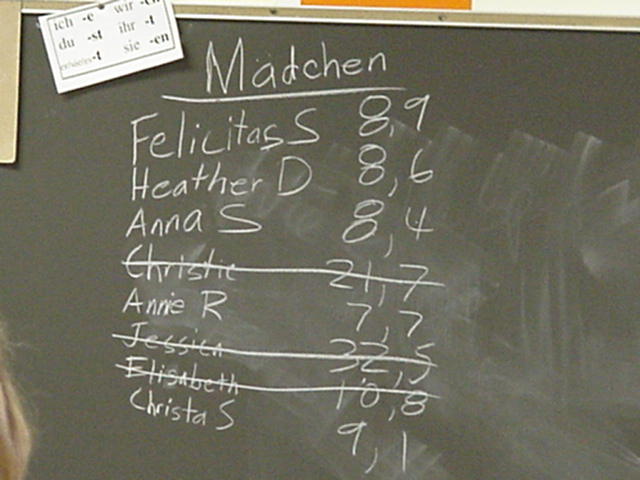 ich -e wir -en
du -st ihr -t
er/sie/es -t sie -en
Mädchen
Felicitas S 8,9
Heather D 8,6
Anna S 8,4
Christie 21,7
Annie R 7,7
Jessica 32,5
Elisabeth 10,8
Christa S 9,1